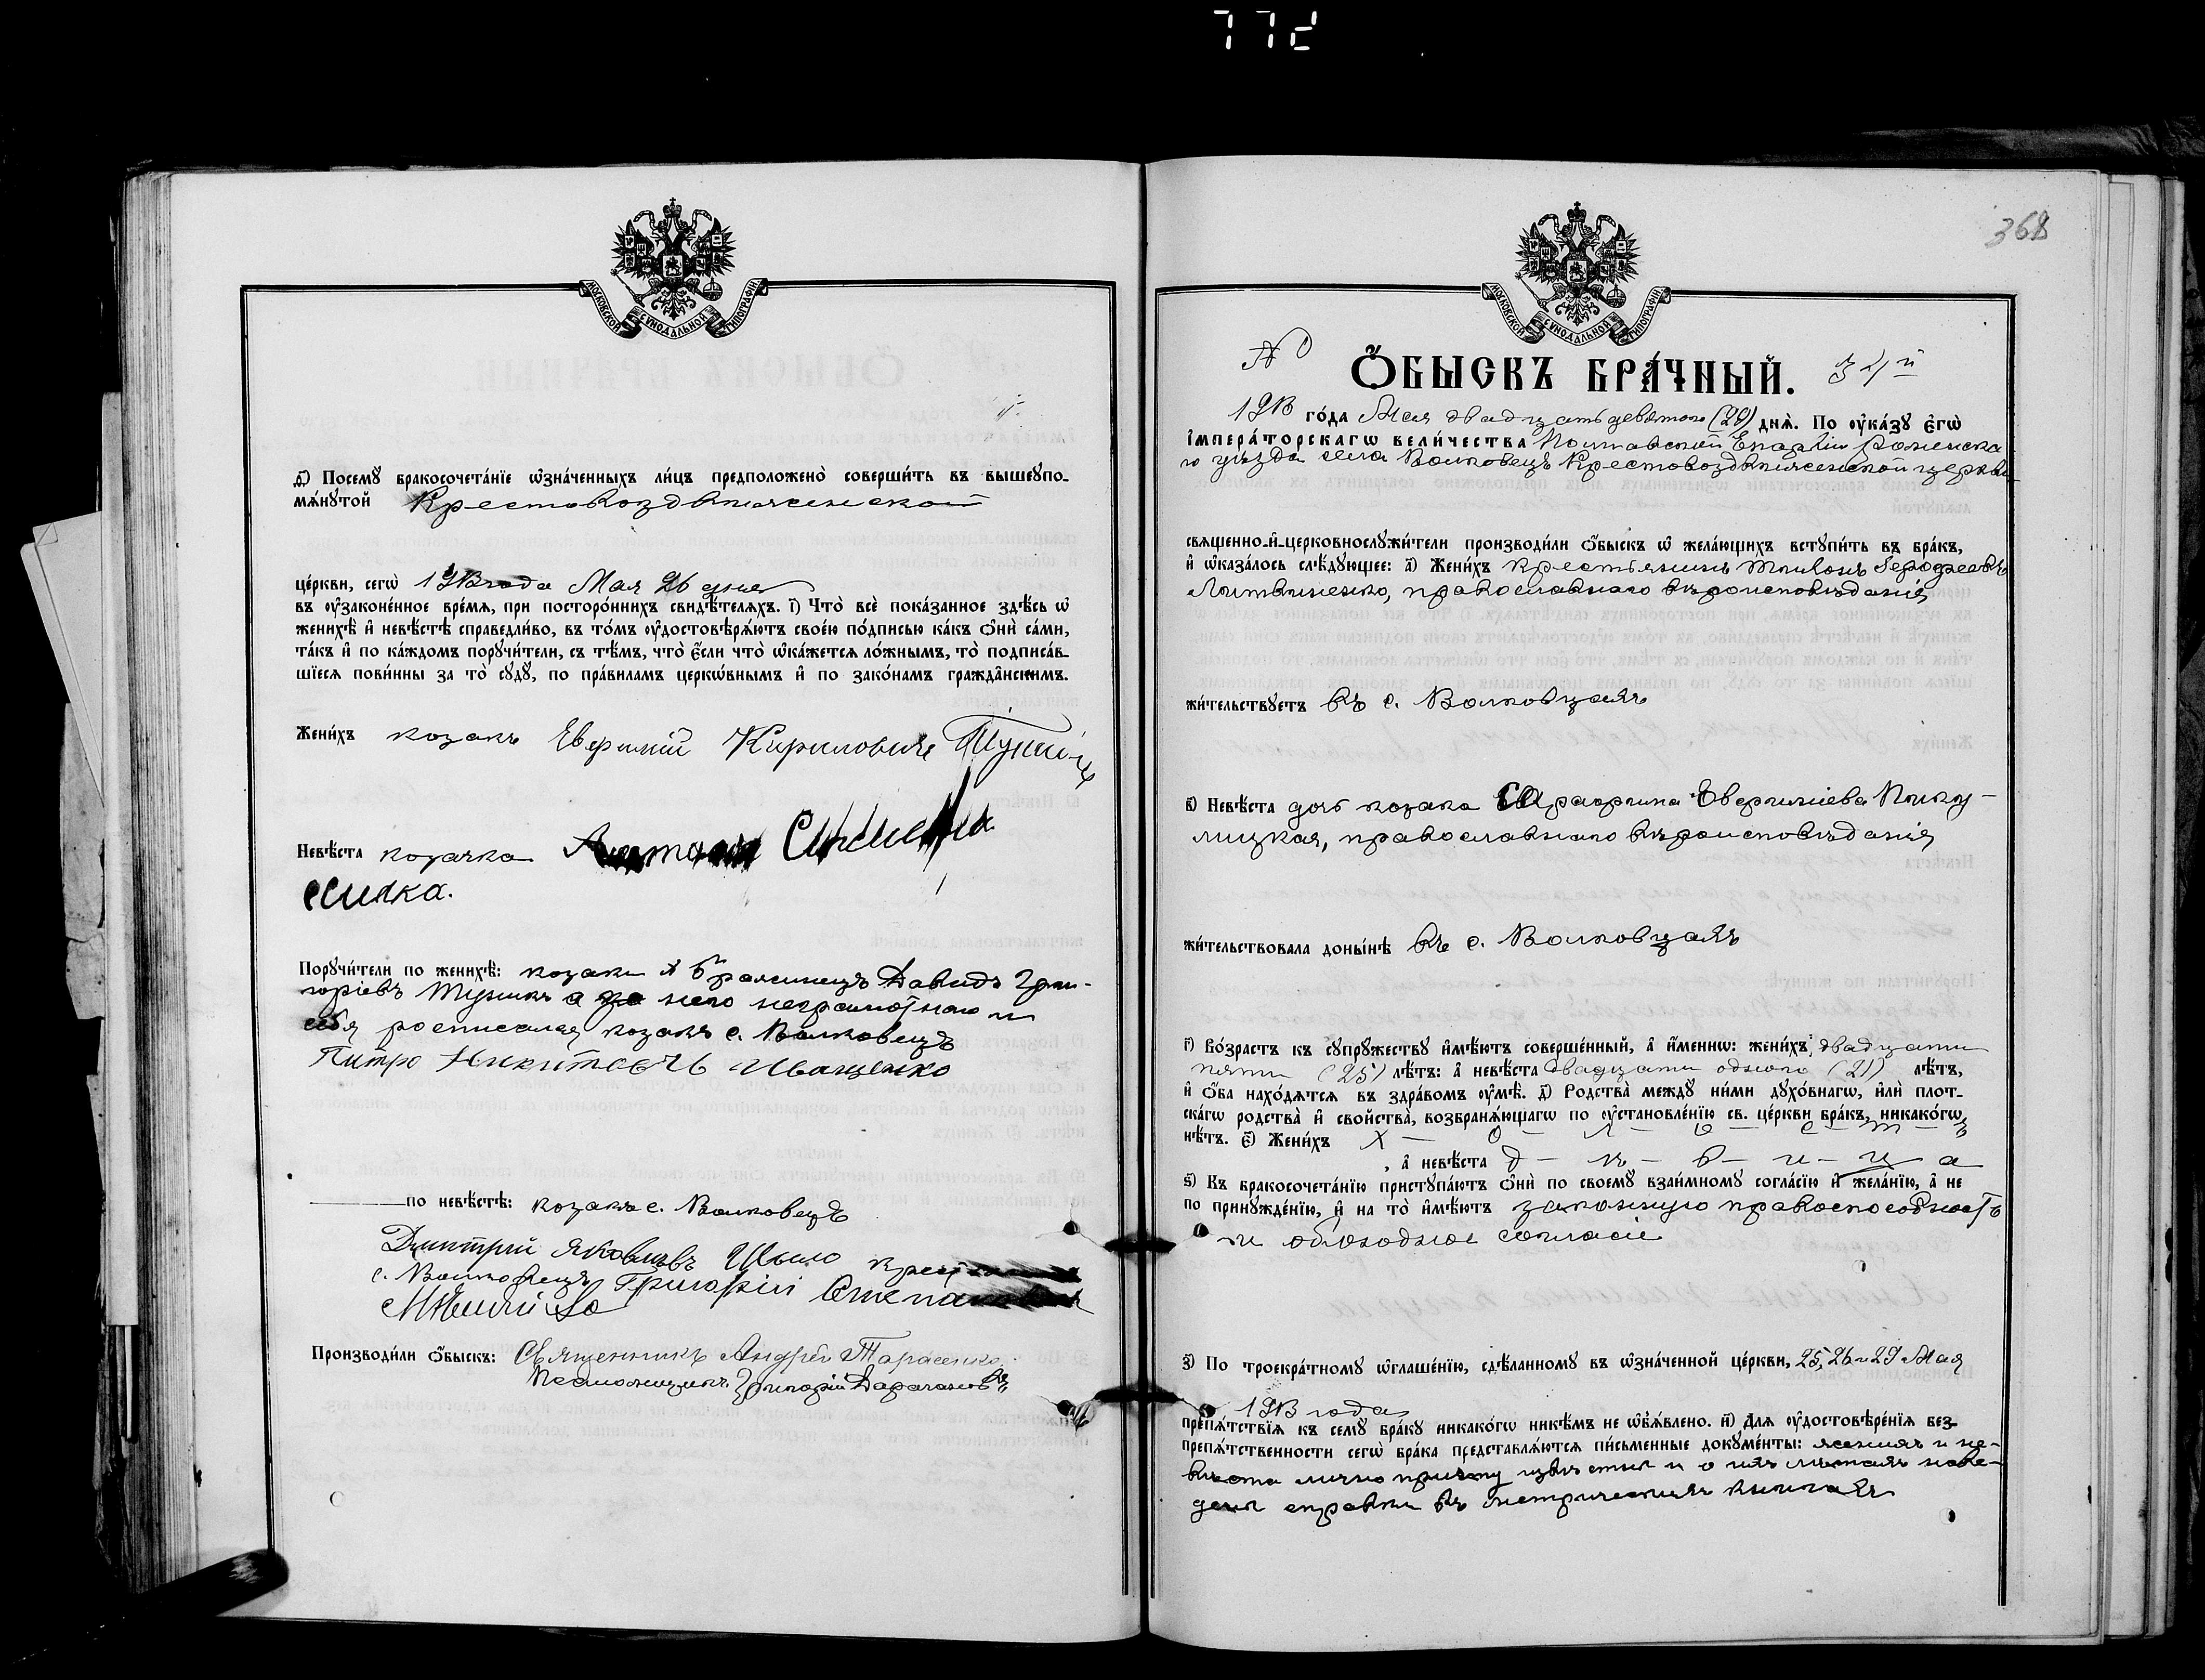 772
МОСКОВСКОЙ СѴНОДАЛЬНОЙ ТИПОГРАФІИ
ѳ҃) Посемꙋ бракосочета́нїе ѡ҆зна́ченныхъ ли́цъ предположено̀ соверши́ть въ вышеꙋпо-
мѧ́нꙋтой Крестовоздвиженской
це́ркви, сегѡ̀ 1913 года Мая 26 дня
въ ᲂу҆законе́нное вре́мѧ, при посторо́ннихъ свидѣ́телѧхъ. і҃) Что̀ всѐ пока́занное здѣ́сь ѡ҆
женихѣ̀ и҆ невѣ́стѣ справедли́во, въ то́мъ ᲂу҆достовѣрѧ́ютъ свое́ю по́дписью ка́къ ѻ҆нѝ са́ми,
та́къ и҆ по ка́ждомъ порꙋчи́тели, съ тѣ́мъ, что̀ є҆́сли что̀ ѡ҆ка́жетсѧ ло́жнымъ, то̀ подписа́в-
шїесѧ пови́нны за то̀ сꙋдꙋ̀, по пра́виламъ церкѡ́внымъ и҆ по зако́намъ гражда̑нскимъ.
Жени́хъ козакъ Евфимій Кириловичъ
Невѣ́ста козачка
Порꙋчи́тели по женихѣ̀: козаки Давидъ Гри-
горіевъ а за него неграмотнаго и
себя росписался козакъ с. Волковецъ
Питро Никитовичь Иващенко
по невѣ́стѣ: козакъ с. Волковецъ
Дмитрій Яковлевъ Шило
с. Волковецъ Григорій
Производи́ли ѻ҆́быскъ: Священникъ Андрей Тарасенко
Псаломщикъ Григорій
368
МОСКОВСКОЙ СѴНОДАЛЬНОЙ ТИПОГРАФІИ
№ Ѻ҆́БЫСКЪ БРА́ЧНЫЙ. 34й
1913 го́да Мая двадцать девятого (29) днѧ̀. По ᲂу҆ка́зꙋ є҆гѡ̀
і҆мпера́торскагѡ вели́чества Полтавской Епархіи Роменска
го уѣзда села Волковецъ Крестовоздвиженской церкви
свѧщенно-и҆-церковнослꙋжи́тели производи́ли ѻ҆́быскъ ѡ҆ жела́ющихъ встꙋпи́ть въ бра́къ,
и҆ ѡ҆каза́лось слѣ́дꙋющее: а҃) Жени́хъ крестьянинъ Тихонъ
Литвиненко, православнаго вѣроисповѣданія
жи́тельствꙋетъ въ с. Волковцахъ
в҃) Невѣ́ста дочь козака Евфиміева Пику-
лицкая, православнаго вѣроисповѣданія
жи́тельствовала доны́нѣ въ с. Волковцахъ
г҃) Во́зрастъ къ сꙋпрꙋжествꙋ и҆мѣ́ютъ соверше́нный, а҆ и҆́меннѡ: жени́хъ двадцати
пяти (25) лѣ́тъ: а҆ невѣ́ста двадцати одного (21) лѣ́тъ,
и҆ ѻ҆́ба нахо́дѧтсѧ въ здра́вомъ ᲂу҆мѣ̀. д҃) Родства̀ междꙋ̀ ни́ми дꙋхо́внагѡ, и҆лѝ плот-
ска́гѡ родства̀ и҆ сво́йства̀, возбранѧ́ющагѡ по ᲂу҆становле́нїю св. це́ркви бра́къ, никако́гѡ
нѣ́тъ. є҃) Жени́хъ х – о – л – о – с – т – ъ
, а҆ невѣ́ста д – ѣ – в – и – ц – а
ѕ҃) Къ бракосочета́нїю пристꙋпа́ютъ ѻ҆нѝ по своемꙋ̀ взаи́мномꙋ согла́сїю и҆ жела́нїю, а҆ не
по принꙋжде́нїю, и҆ на то̀ и҆мѣ́ютъ законную правоспособность
и обоюдное согласіе
з҃) По троекра́тномꙋ ѡ҆глаше́нїю, сдѣ́ланномꙋ въ ѡ҆зна́ченной це́ркви, 25, 26 и 29 Мая
1913 года
препѧ́тствїѧ къ семꙋ̀ бра́кꙋ никако́гѡ никѣ́мъ не ѡ҆бъѧ́влено. и҃) Длѧ ᲂу҆достовѣре́нїѧ без-
препѧ́тственности сегѡ̀ бра́ка представлѧ́ютсѧ пи́сьменные докꙋме́нты: женихъ и не-
вѣста лично причту извѣстны и о ихъ лѣтахъ наве-
дены справки въ метрическихъ книгахъ